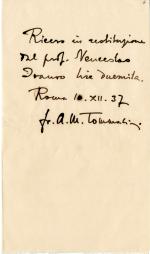 Ricevo in restituzione
dal prof. Venceslao
Ivanov lire duemila.
Roma 10.XII.37
fr. A. M. Tommasini